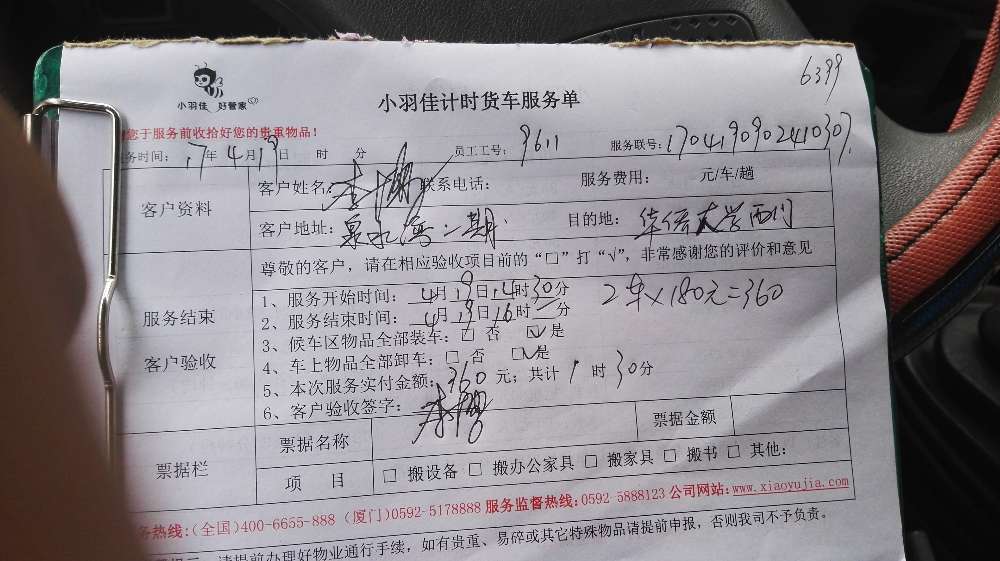 6399
小羽佳 好管家
小羽佳计时货车服务单
您于服务前收拾好您的贵重物品！
务时间：17年4月19日 时 分 员工工号：9611 服务联号：1704190902410307
客户资料
客户姓名： 联系电话： 服务费用： 元/车/趟
客户地址：泉水湾二期 目的地：华侨大学西门
尊敬的客户，请在相应验收项目前的“□”打“√”，非常感谢您的评价和意见
服务结束
客户验收
1、服务开始时间：4月19日14时30分
2、服务结束时间：4月19日16时 分
2车×180元=360
3、候车区物品全部装车：□ 否 ☑是
4、车上物品全部卸车：□ 否 ☑是
5、本次服务实付金额：360元；共计1时30分
6、客户验收签字：
票据栏
票据名称 票据金额
项 目 □ 搬设备 □ 搬办公家具 □ 搬家具 □ 搬书 □ 其他：
务热线：(全国)400-6655-888 (厦门)0592-5178888 服务监督热线：0592-5888123 公司网站：www.xiaoyujia.com
请提前办理好物业通行手续，如有贵重、易碎或其它特殊物品请提前申报，否则我司不予负责。